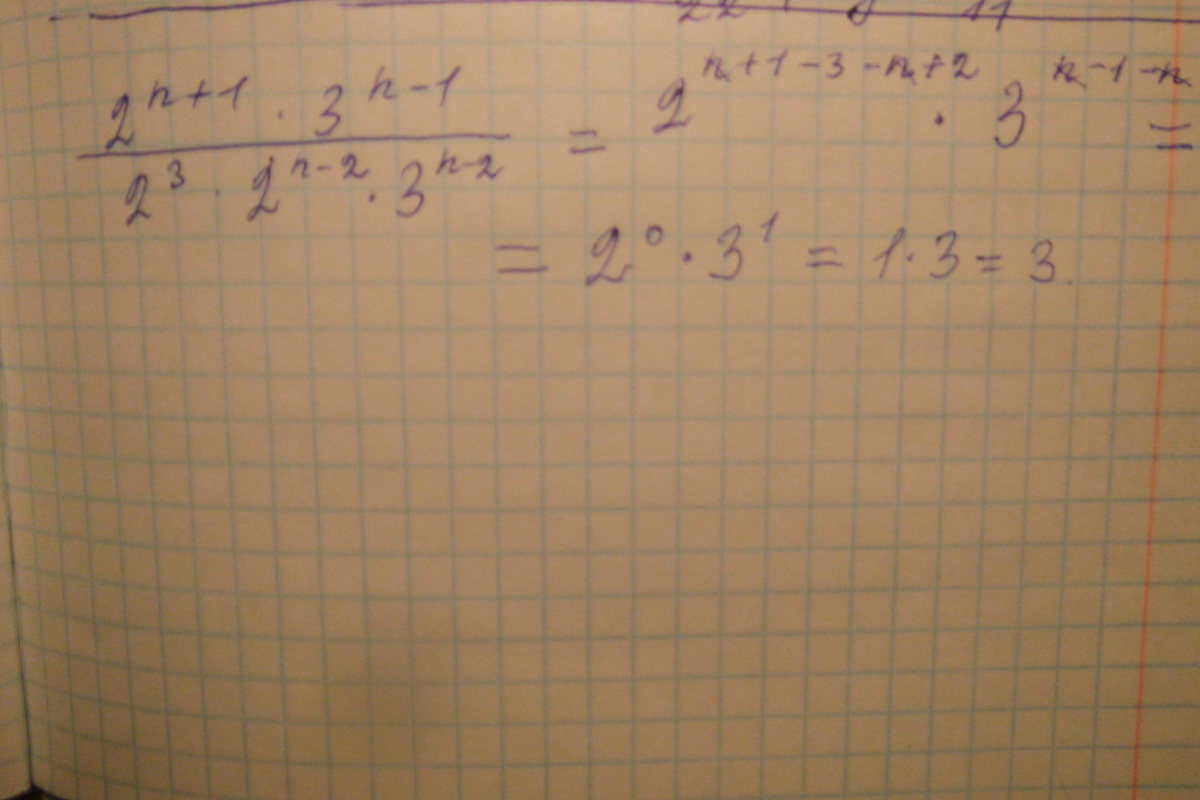 2^{n+1} · 3^{n-1} / 2^3 · 2^{n-2} · 3^{n-2} = 2^{n+1-3-n+2} · 3^{n-1-n} =
= 2^0 · 3^1 = 1 · 3 = 3.